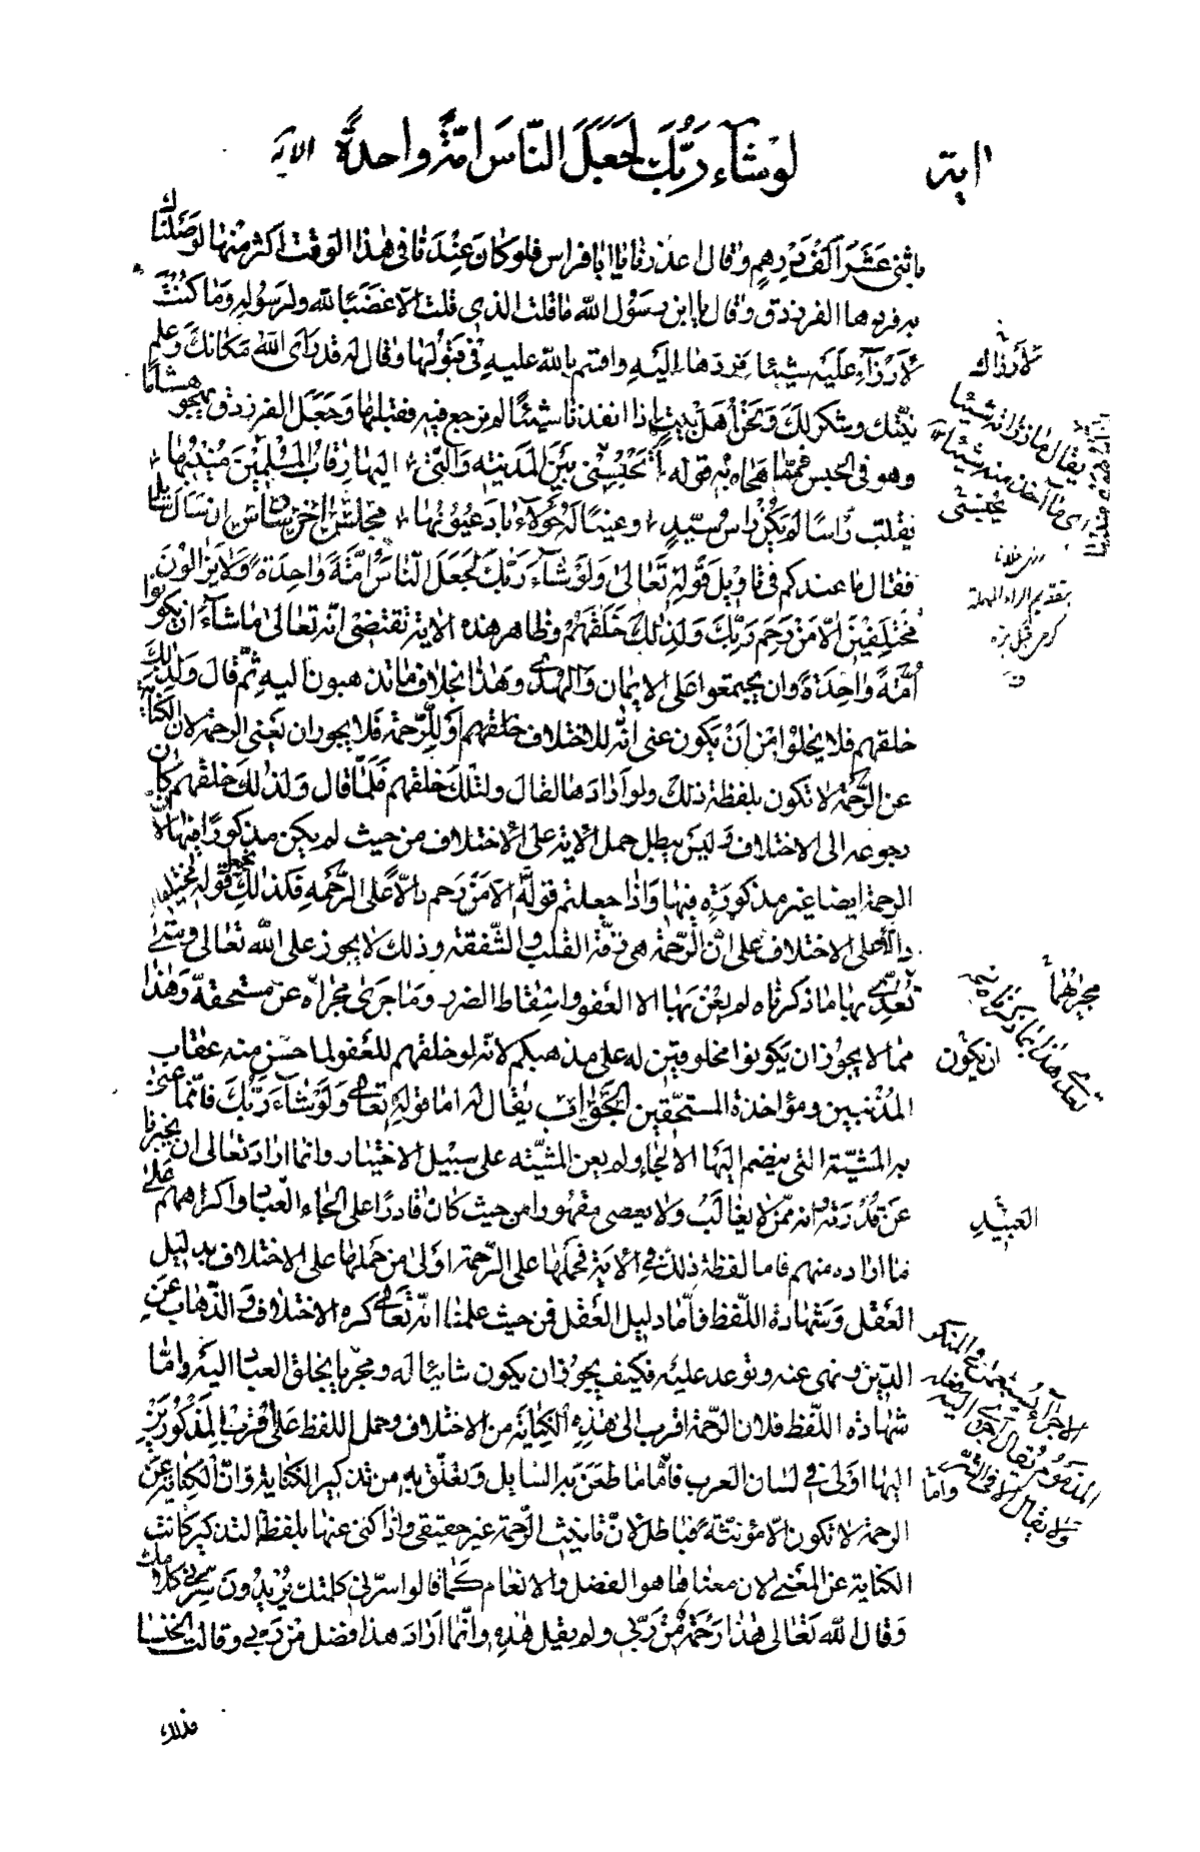 اية
لو شاء ربك لجعل الناس امة واحدة الاية
باثنى عشر الف درهم وقال اعذرنا يا ابا فراس فلو كان عندنا فى هذا الوقت اكثر منها لوصلناك
به فردها الفرزدق وقال يا ابن رسول الله ما قلت الذى قلت الا غضبا لله ولرسوله وما كنت
لأرزاء عليه شيئا فردها اليه واقسم بالله عليه فى قبولها وقال له قد رأى الله مكانك وعلم
نيتك وشكر لك ونحن اهل بيت اذا انفذنا شيئا لم نرجع فيه فقبلها وجعل الفرزدق يهجو هشاما
وهو فى الحبس فمما هجاه به قوله أتحبسنى بين المدينة والتى اليها رقاب المسلمين منيبها
يقلب راسا لم يكن راس سيد وعينا له حولاء باد عيوبها مجلس اخر تاويل ان سال سائل
فقال ما عندكم فى تاويل قوله تعالى ولو شاء ربك لجعل الناس امة واحدة ولا يزالون
مختلفين الا من رحم ربك ولذلك خلقهم وظاهر هذه الاية تقتضى انه تعالى ما شاء ان يكونوا
أمة واحدة وان يجتمعوا على الايمان والهدى وهذا بخلاف ما تذهبون اليه ثم قال ولذلك
خلقهم فلا يخلوا من ان يكون عنى انه للاختلاف خلقهم او للرحمة فلا يجوز ان يعنى الرحمة لان الكناية
عن الرحمة لا تكون بلفظة ذلك ولو ارادها لقال ولتلك خلقهم فلما قال ولذلك خلقهم كان
رجوعه الى الاختلاف وليس يبطل حمل الاية على الاختلاف من حيث لم يكن مذكورا فيها لان
الرحمة ايضا غير مذكورة فيها واذا جعلتم قوله الا من رحم دالا على الرحمة فكذلك قوله مختلفين
دالا على الاختلاف على ان الرحمة هى رقة القلب والشفقة وذلك لا يجوز على الله تعالى ومتى
تعدى بها ما ذكرناه لم يعن بها الا العفو واسقاط الضرر وما جرى مجراه عن مستحقه وهذا
مما لا يجوز ان يكونوا مخلوقين له على مذهبكم لانه لو خلقهم للعفو لما حسن منه عقاب
المذنبين ومؤاخذة المستحقين الجواب يقال له اما قوله تعالى ولو شاء ربك فانما عنى
به المشية التى ينضم اليها الالجاء ولم يعن المشية على سبيل الاختيار وانما اراد تعالى ان يخبرنا
عن قدرته وانه ممن لا يغالب ولا يعصى مقهورا من حيث كان قادرا على الجاء العباد واكراههم على
ما اراده منهم فاما لفظة ذلك فى الاية فحملها على الرحمة اولى من حملها على الاختلاف بدليل
العقل وشهادة اللفظ فأما دليل العقل فمن حيث علمنا انه تعالى كره الاختلاف والذهاب عن
الدين ونهى عنه وتوعد عليه فكيف يجوز ان يكون شائيا له ومجريا بخلق العباد اليه واما
شهادة اللفظ فلان الرحمة اقرب الى هذه الكناية من الاختلاف وحمل اللفظ على اقرب المذكورين
اليها اولى فى لسان العرب فاما ما طعن به السايل وتعلق به من تذكير الكناية وان الكناية عن
الرحمة لا تكون الا مؤنثة فباطل لان تانيث الرحمة غير حقيقى واذا كنى عنها بلفظ التذكير كانت
الكناية عن المعنى لان معناها هو الفضل والانعام كما قالوا سرنى كلمتك يريدون سرنى كلامك
وقال الله تعالى هذا رحمة من ربى ولم يقل هذه وانما اراد هذا فضل من ربى وقالت الخنساء
لأرزاك
يقال ما رزأته شيئا
اى ما اخذت منه شيئا
يحبسنى
بتقديم الراء المهملة
مجراهما
ان يكون
العبيد
واما
فذلك